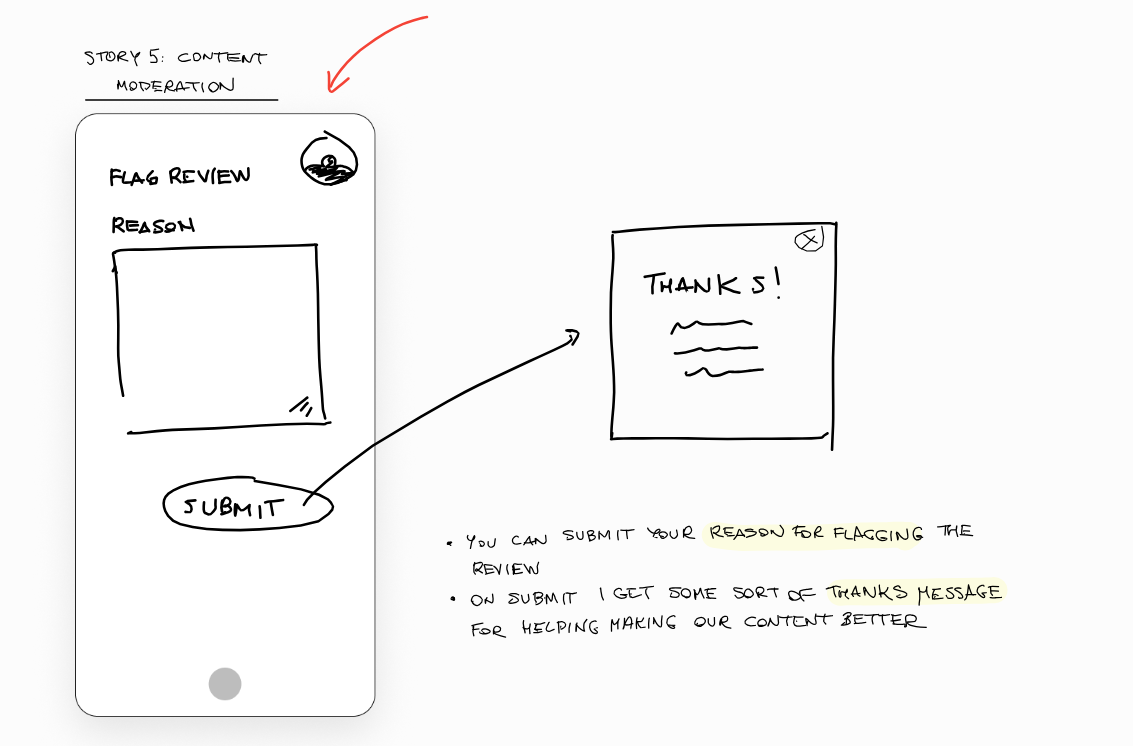 STORY 5: CONTENT
MODERATION
FLAG REVIEW
REASON
SUBMIT
THANKS!
• YOU CAN SUBMIT YOUR REASON FOR FLAGGING THE
REVIEW
• ON SUBMIT I GET SOME SORT OF THANKS MESSAGE
FOR HELPING MAKING OUR CONTENT BETTER